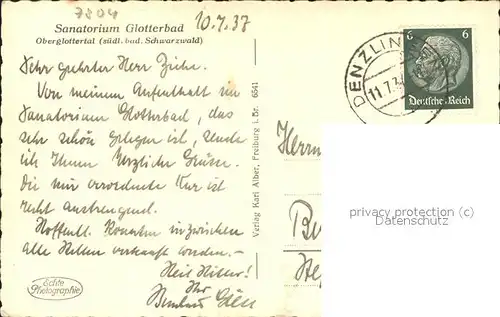 7804
Sanatorium Glotterbad
Oberglottertal (südl. bad. Schwarzwald)
10.7.37
Sehr geehrter Herr
Von meinem Aufenthalt im
Sanatorium Glotterbad, das
sehr schön gelegen ist, sende
ich Ihnen herzliche Grüsse.
Die mir verordnete Kur ist
recht anstrengend.
Hoffentl. konnten inzwischen
alle Stellen verkauft werden.-
Heil Hitler!
Ihr
Echte
Photographie
Verlag Karl Alber, Freiburg i. Br. 6541
DENZLIN
11.7.3
6 6
Deutsches Reich
Herrn
privacy protection (c)
Datenschutz